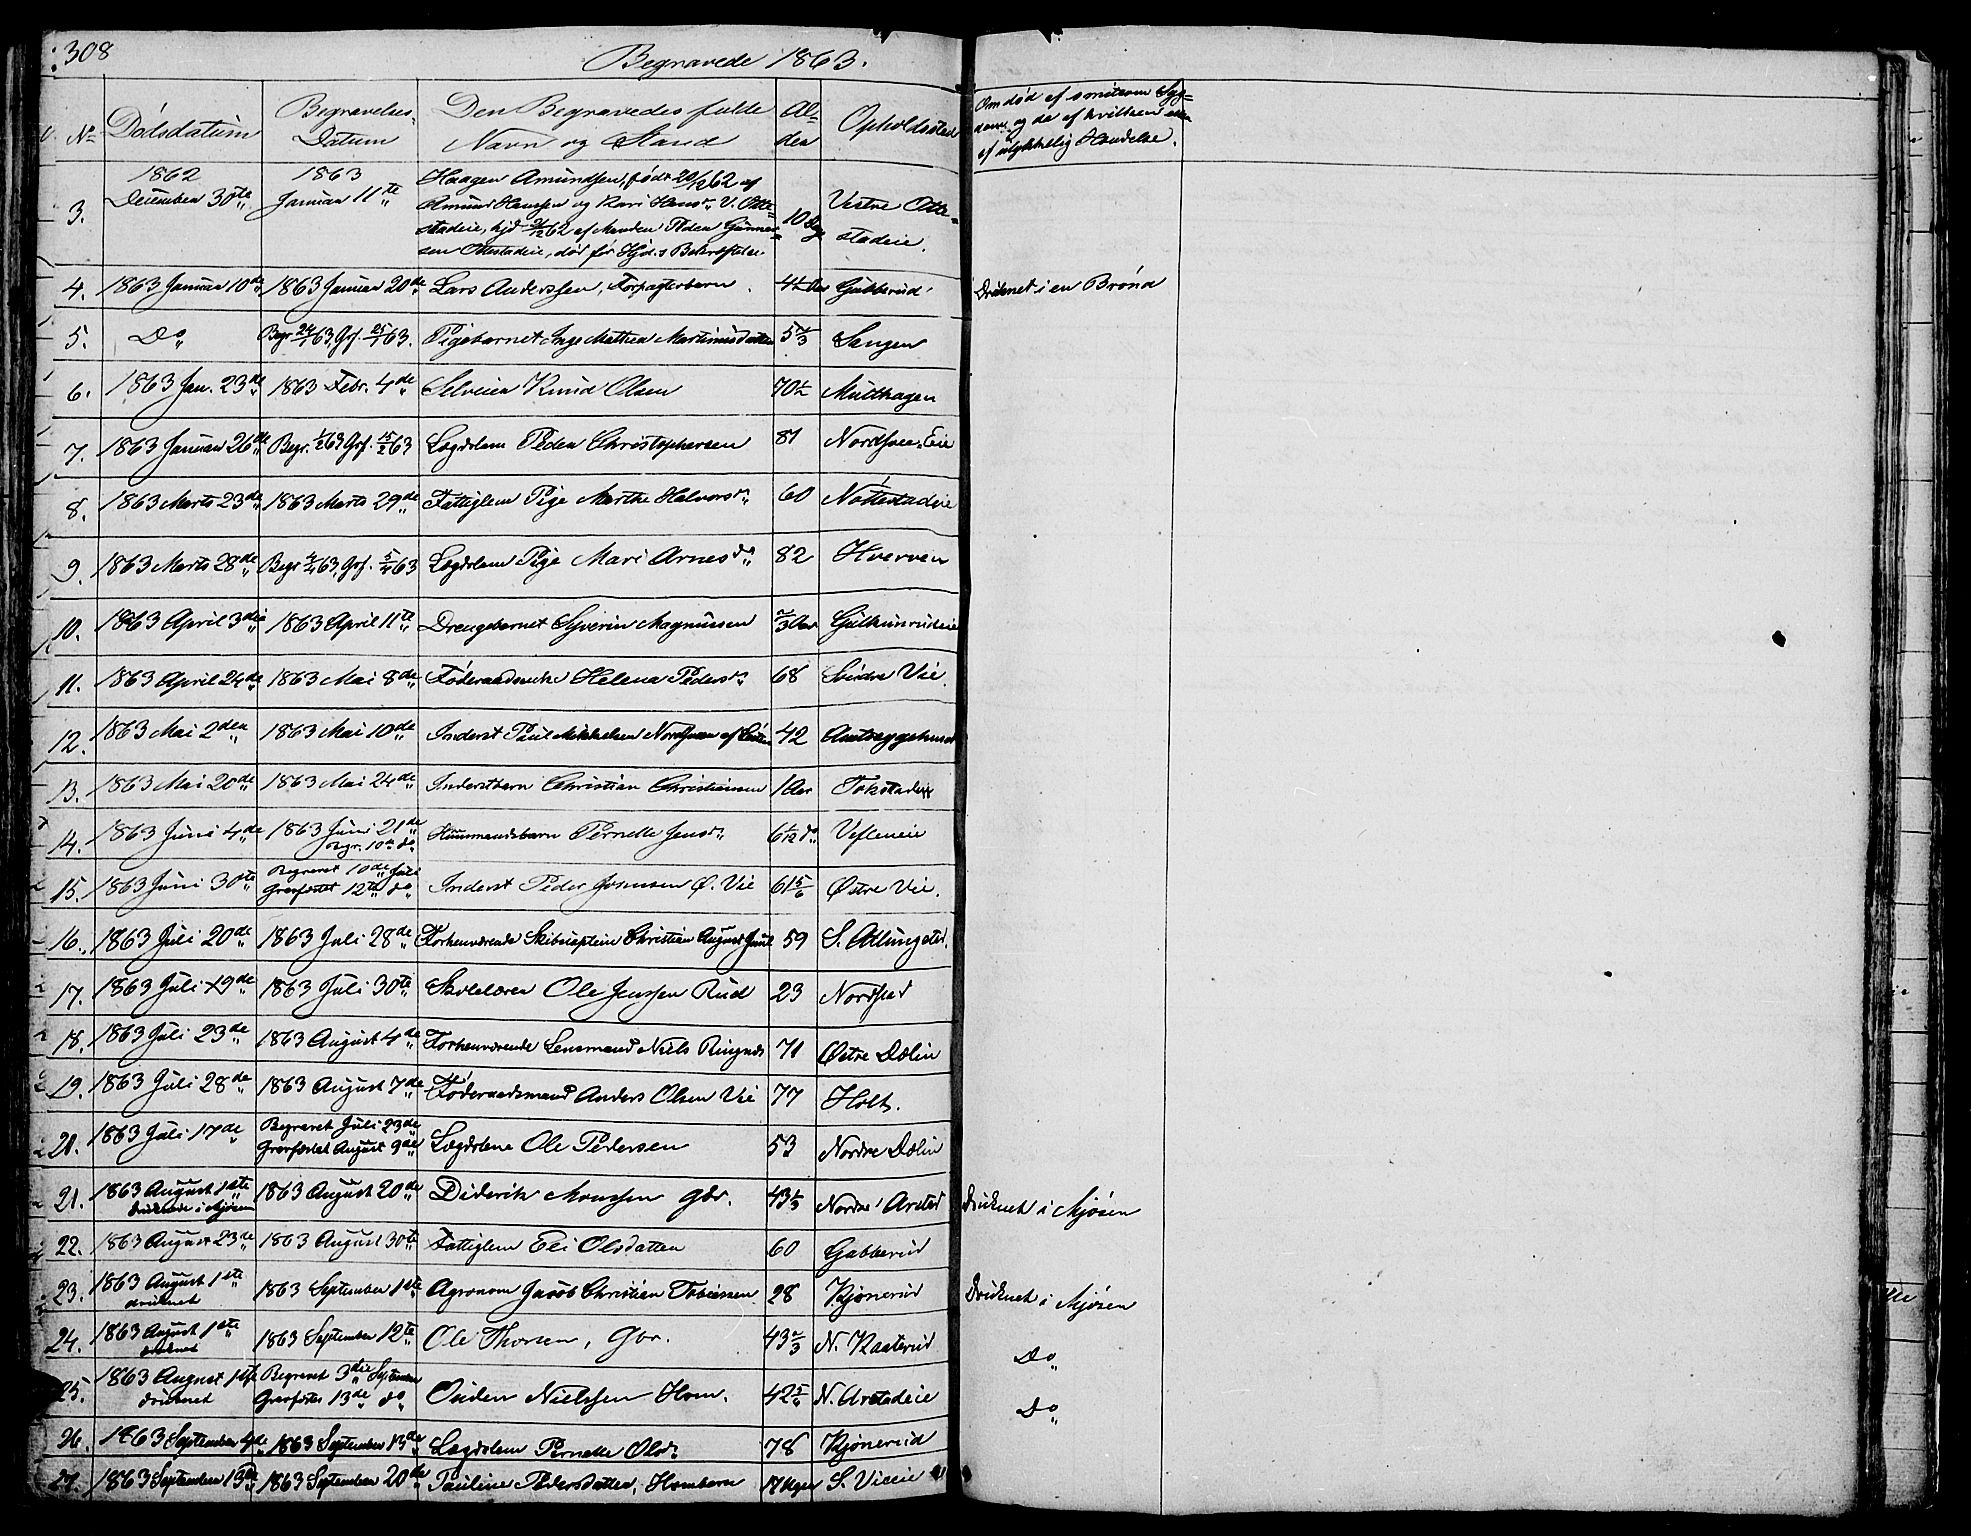 308
Begravede 1863.
No Dödsdatum Begravelses Datum Den Begravedes fulde Navn og Stand Alder Opholdssted Om död af smitsom Syg=
dom og da af hvilken
af ulykkelig Hændelse.
3. 1862 December 30te 1863 Januar 11te Haagen Amundsen, födt 20/12 62 af
Amund Hansen og Kari Hansd. V. Otte=
stadeie, hjd 62 af Manden Peder Gunner=
sen Ottestadeie, död før Hjd.s Bekræftelse. 10 Dage Vestre Otte=
stadeie.
4. 1863 Januar 10de 1863 Januar 20de Lars Anderssen, Forpagterbarn. 4½ Aar Gubberud Druknet i en Brønd
5. Do Begr 24/1 63, Grf. 25/1 63. Pigebarnet Inge Mathea Martinusdatter 5 2/3 Sangen
6. 1863 Jan. 23de 1863 Febr. 4de Selveier Knud Olsen 70½ Multhagen
7. 1863 Januar 26de Begr. 1/2 63 Grf. 15/2 63 Lægdslem Peder Christophersen 81 Nordsvee-Eie
8. 1863 Marts 23de 1863 Marts 29de Fattiglem Pige Marthe Halvorsd. 60 Nöttestadeie
9. 1863 Marts 28de Begr 4/4 63, Grf. 5/4 63 Lægdslem Pige Mari Arnesd. 82 Hverven
10. 1863 April 3die 1863 April 11te Drengebarnet Syverin Magnussen 2/3 Aar
11. 1863 April 24de 1863 Mai 8de Föderaadsenke Helena Pedersd. 68 Søndre Vie.
12. 1863 Mai 2den 1863 Mai 10de Inderst Paul Mikkelsen Nordsveen af Löiten 42
13. 1863 Mai 20de 1863 Mai 24de Inderstbarn Christian Christiansen 1 Aar Tokstad
14. 1863 Juni 4de 1863 Juni 21de
Begr. 10de do Huusmandsbarn Pernelle Jensd. 6 1/12 do Vefleneie
15. 1863 Juni 30te Begravet 10de Juli
Gravfæstet 12te do Inderst Peder Jonnsen Ø. Vie 61 5/6 Østre Vie.
16. 1863 Juli 20de 1863 Juli 28de Forhenværende Skibscaptein Christian August Juul 59 S. Atlungstad.
17. 1863 Juli 19de 1863 Juli 30te Skolelærer Ole Jenssen Rud 23 Nordstad
18. 1863 Juli 23de 1863 August 4de Forhenværende Lensmand Niels Ringnæs 71 Østre Dælin
19. 1863 Juli 28de 1863 August 7de Föderaadsmand Anders Olsen Vie 77 Holt.
20. 1863 Juli 17de Begravet Juli 23de
Gravfæstet August 9de Lægdslem Ole Pedersen 53 Nordre Dælin
21. 1863 August 1ste
druknede i Mjøsen 1863 August 20de Diderik Monssen gbr. 43 1/3 Nordre Arstad Druknet i Mjøsen
22. 1863 August 23de 1863 August 30te Fattiglem Eli Olsdatter 60 Gubberud
23. 1863 August 1ste
druknet 1863 September 1ste Agronom Jacob Christian Tobiessen 28 Kjonerud Druknet i Mjøsen
24. 1863 August 1ste
druknet 1863 September 12te Ole Thorsen, Gbr. 43 2/3 N. Kaaterud Do
25. 1863 August 1ste
druknet Begravet 3die September
Gravfæstet 13de do Ouden Nielssen Hsm. 42 N. Arstadeie Do
26. 1863 September 4de 1863 September 13de Lægdslem Pernelle Olsd. 78 Kjonerud
27. 1863 September 13de 1863 September 20de Pauline Pedersdatter, Hsmbarn 17 Uger S. Vieeie